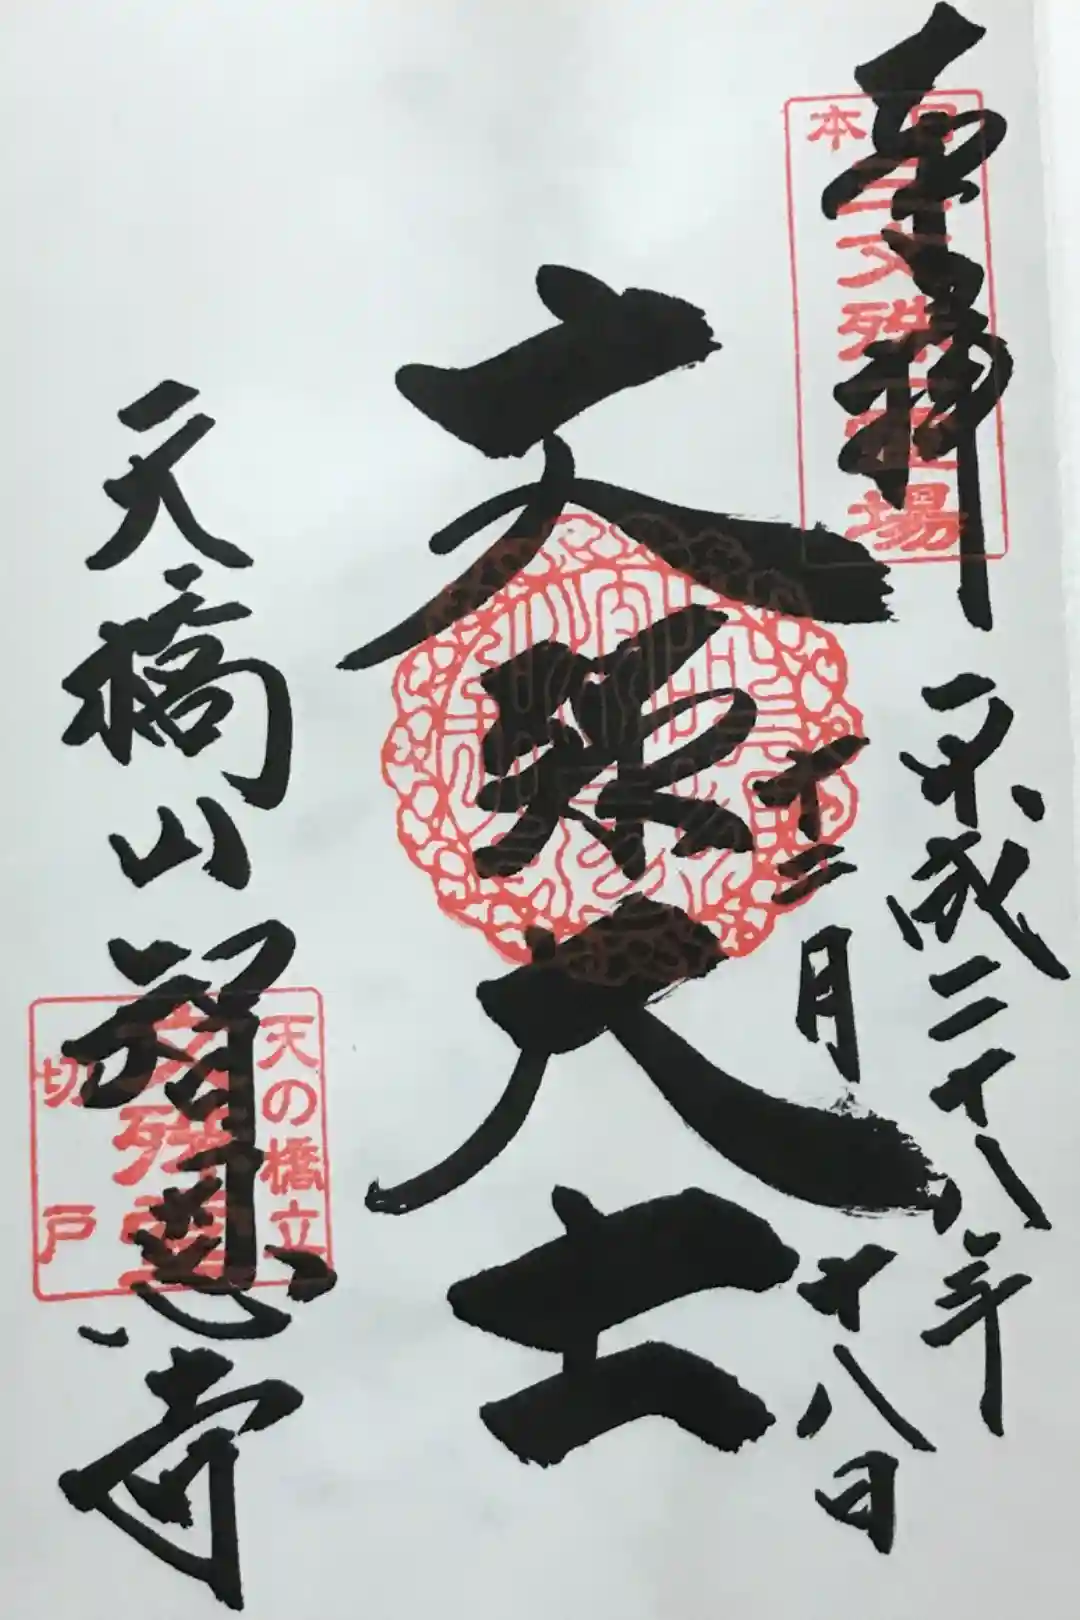 奉拝
日本
三文殊霊場
平成二十八年
十二月十八日
文殊大士
天橋山智恩寺
天の橋立
文殊堂
切戸